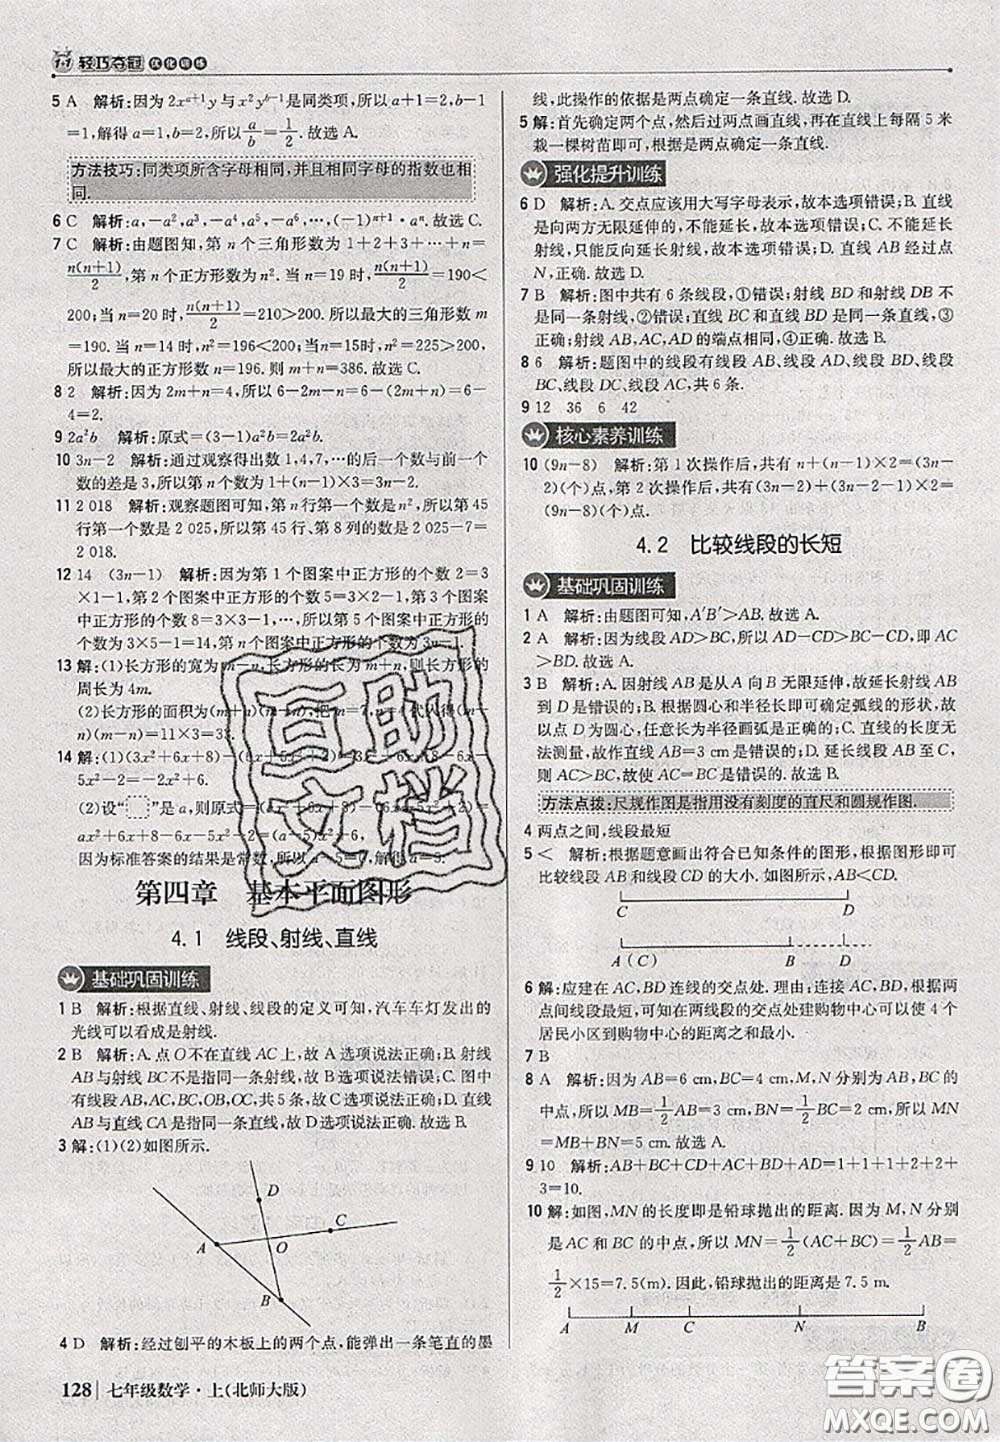 1+1 轻巧夺冠 优化训练
5 A 解析:因为2xᵃ⁺¹y与x²yᵇ⁻¹是同类项,所以a+1=2,b-1
=1,解得a=1,b=2,所以a/b=1/2.故选A.
方法技巧:同类项所含字母相同,并且相同字母的指数也相
同.
6 C 解析:a,-a²,a³,-a⁴,a⁵,-a⁶,…,(-1)ⁿ⁺¹·aⁿ.故选C.
7 C 解析:由题图知,第n个三角形数为1+2+3+…+n=
n(n+1)/2,第n个正方形数为n².当n=19时,n(n+1)/2=190<
200;当n=20时,n(n+1)/2=210>200.所以最大的三角形数m
=190.当n=14时,n²=196<200;当n=15时,n²=225>200,
所以最大的正方形数n=196.则m+n=386.故选C.
8 2 解析:因为2m+n=4,所以6-2m-n=6-(2m+n)=6-
4=2.
9 2a²b 解析:原式=(3-1)a²b=2a²b.
10 3n-2 解析:通过观察得出数1,4,7,…的后一个数与前一个
数的差是3,所以第n个数是1+(n-1)×3=3n-2.
11 2 018 解析:观察题图可知,第n行第一个数是n²,所以第45
行第一个数是2 025,所以第45行、第8列的数是2 025-7=
2 018.
12 14 (3n-1) 解析:因为第1个图案中正方形的个数2=3
×1-1,第2个图案中正方形的个数5=3×2-1,第3个图案
中正方形的个数8=3×3-1,…,所以第5个图案中正方形的
个数为3×5-1=14,第n个图案中正方形的个数为3n-1.
13 解:(1)长方形的宽为m-n,长方形的长为m+n,则长方形的
周长为4m.
(2)长方形的面积为(m+n)(m-n)
n)(m-n)=11×3=33.
14 解:(1)(3x²+6x+8)-(6x+5x²+2)=3x²+6x+8-6x-
5x²-2=-2x²+6.
(2)设“ ”是a,则原式=(ax²+6x+8)-(6x+5x²+2)=
ax²+6x+8-6x-5x²-2=(a-5)x²+6.
因为标准答案的结果是常数,所以a-5=0,解得a=5.
第四章 基本平面图形
4.1 线段、射线、直线
基础巩固训练
1 B 解析:根据直线、射线、线段的定义可知,汽车车灯发出的
光线可以看成是射线.
2 B 解析:A.点O不在直线AC上,故A选项说法正确;B.射线
AB与射线BC不是指同一条射线,故B选项说法错误;C.图中
有线段AB,AC,BC,OB,OC,共5条,故C选项说法正确;D.直线
AB与直线CA是指同一条直线,故D选项说法正确.故选B.
3 解:(1)(2)如图所示.
D
C
A
O
B
4 D 解析:经过刨平的木板上的两个点,能弹出一条笔直的墨
128 七年级数学·上(北师大版)
线,此操作的依据是两点确定一条直线.故选D.
5 解:首先确定两个点,然后过两点画直线,再在直线上每隔5米
栽一棵树苗即可.根据是两点确定一条直线.
强化提升训练
6 D 解析:A.交点应该用大写字母表示,故本选项错误;B.直线
是向两方无限延伸的,不能延长,故本选项错误;C.不能延长
射线,只能反向延长射线,故本选项错误;D.直线AB经过点
N,正确.故选D.
7 B 解析:图中共有6条线段,①错误;射线BD和射线DB不
是同一条射线,②错误;直线BC和直线BD是同一条直线,③
正确;射线AB,AC,AD的端点相同,④正确.故选B.
8 6 解析:题图中的线段有线段AB、线段AD、线段BD、线段
BC、线段DC、线段AC,共6条.
9 12 36 6 42
核心素养训练
10 (9n-8) 解析:第1次操作后,共有n+(n-1)×2=(3n-
2)(个)点,第2次操作后,共有(3n-2)+(3n-2-1)×2=
(9n-8)(个)点.
4.2 比较线段的长短
基础巩固训练
1 A 解析:由题图可知,A′B′>AB.故选A.
2 A 解析:因为线段AD>BC,所以AD-CD>BC-CD,即AC
>BD.故选A.
3 B 解析:A.因射线AB是从A向B无限延伸,故延长射线AB
到D是错误的;B.根据圆心和半径长即可确定弧线的形状,故
以点D为圆心,任意长为半径画弧是正确的;C.直线的长度无
法测量,故作直线AB=3 cm是错误的;D.延长线段AB至C,
则AC>BC,故作AC=BC是错误的.故选B.
方法点拨:尺规作图是指用没有刻度的直尺和圆规作图.
4 两点之间,线段最短
5 < 解析:根据题意画出符合已知条件的图形,根据图形即可
比较线段AB和线段CD的大小.如图所示,AB<CD.
C D
A(C) B D
6 解:应建在AC,BD连线的交点处.理由:连接AC,BD,根据两
点间线段最短,可知在两线段的交点处建购物中心可以使4个
居民小区到购物中心的距离之和最小.
7 B
8 A 解析:因为AB=6 cm,BC=4 cm,M,N分别为AB,BC的
中点,所以MB=1/2AB=3 cm,BN=1/2BC=2 cm,所以MN
=MB+BN=5 cm.故选A.
9 10 解析:AB+BC+CD+AC+BD+AD=1+1+1+2+2+
3=10.
10 解:如图,MN的长度即是铅球抛出的距离.因为M,N分别
是AC和BC的中点,所以MN=1/2(AC+BC)=1/2AB=
1/2×15=7.5(m).因此,铅球抛出的距离是7.5 m.
A M C N B
百助
文档
答案圈
MXQE.COM